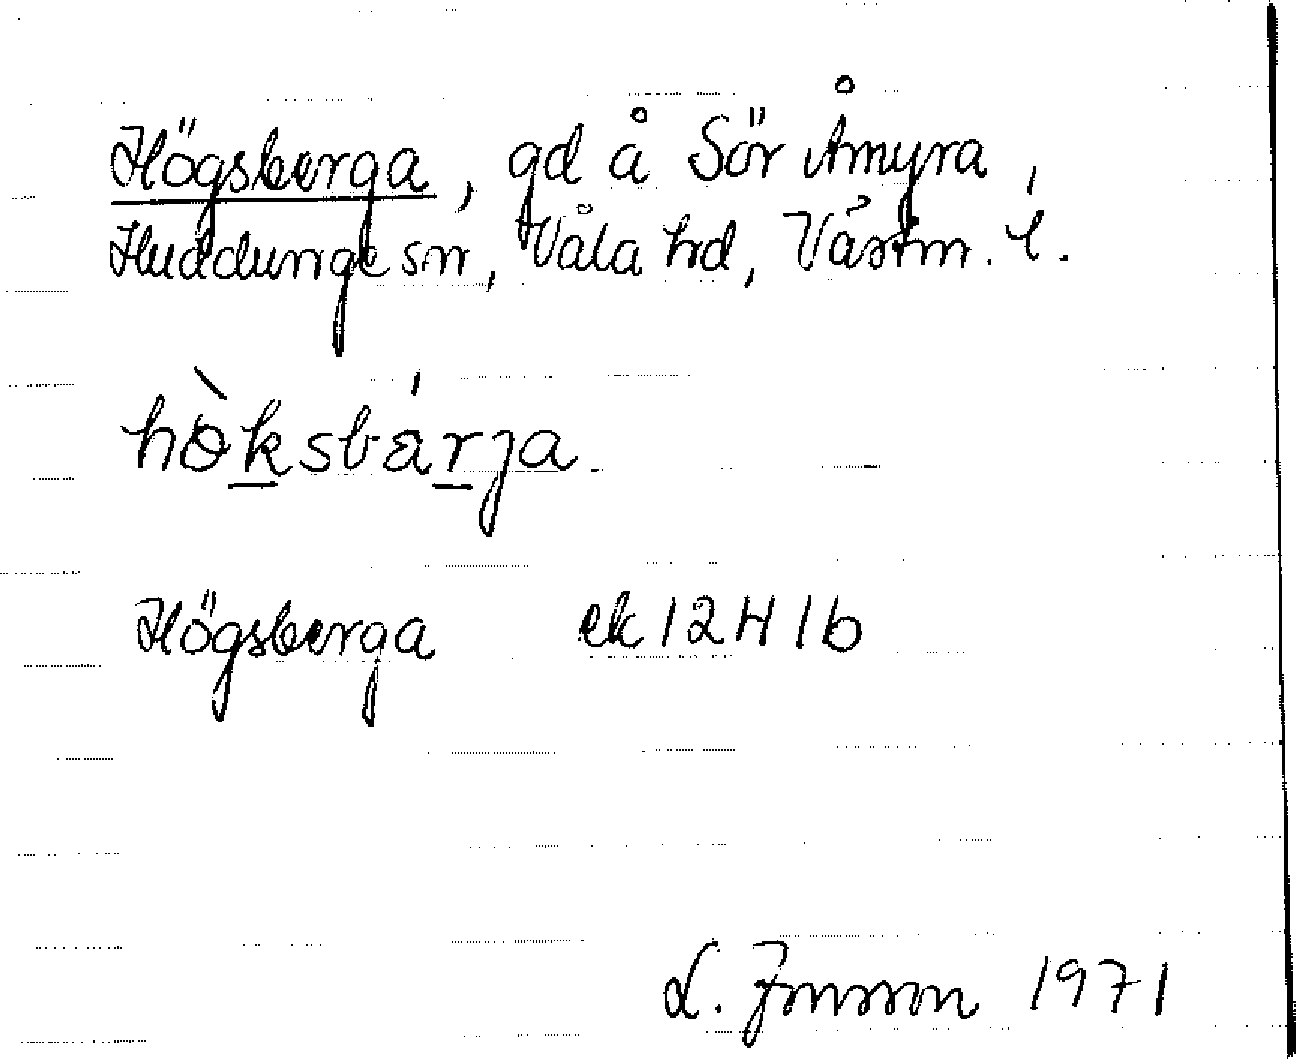 Högsberga, gd å Sör Åmyra,
Huddunge sn, Våla hd, Västm. l.
hò̱ksbárja
Högsberga ek 12 H 1b
L. Jonsson 1971